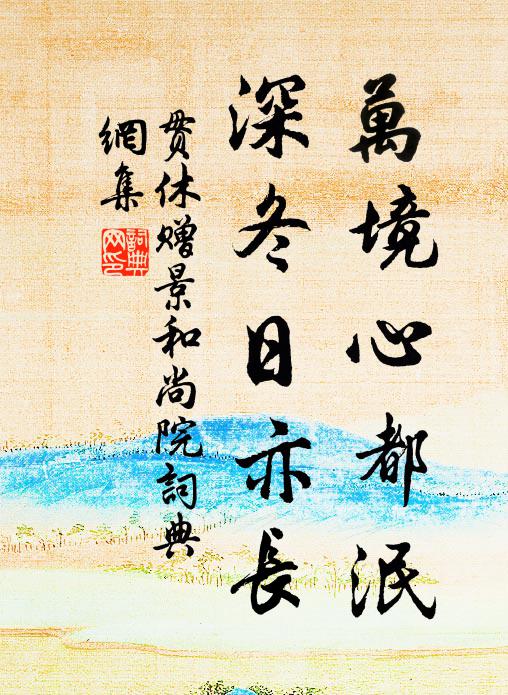 萬境心都泯
深冬日亦長
贯休赠景和尚院詞典
網集
詞典
网印